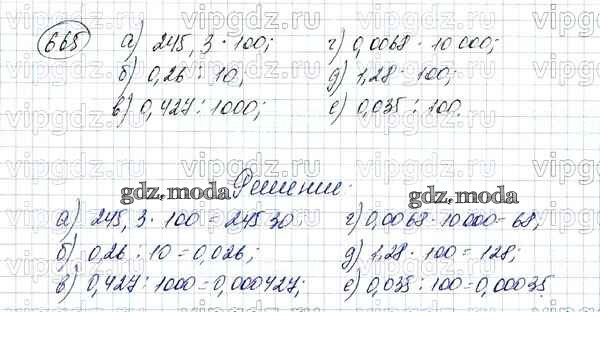 665 а) 245,3 · 100; г) 0,0068 · 10 000;
б) 0,26 : 10; д) 1,28 · 100;
в) 0,427 : 1000; е) 0,035 : 100.
Решение.
gdz.moda gdz.moda
а) 245,3 · 100 = 24530; г) 0,0068 · 10000 = 68;
б) 0,26 : 10 = 0,026; д) 1,28 · 100 = 128;
в) 0,427 : 1000 = 0,000427; е) 0,035 : 100 = 0,00035.
vipgdz.ru